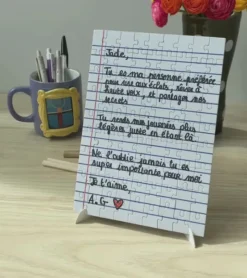 Jade,
Tu es ma personne préférée
pour rire aux éclats, rêver à
haute voix, et partager nos
secrets
Tu rends mes journées plus
légères juste en étant là
Ne l'oublie jamais tu es
super importante pour moi
Je t'aime,
A.G